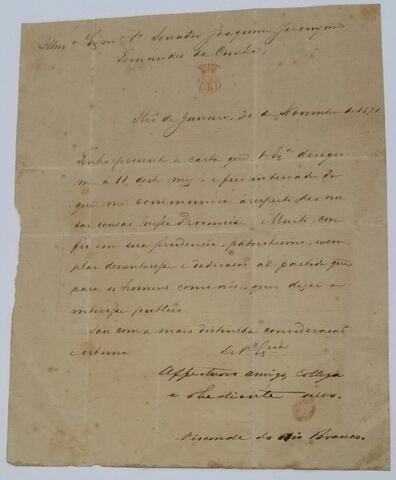 Illmo e Exmo Sr Senador Joaquim Jeronymo
Fernandes da Cunha.
Rio de Janeiro, 20 de Novembro de 1871
Tenho presente a carta que V. Exa
á 11 deste mez, e fico inteirado do
que me communica á respeito das nos
sas cousas nessa Provincia. Muito con
fio em sua prudencia, patriotismo, exem
plar desinteresse e dedicação ao partido, que
para os homens como nós quer dizer o
interesse publico.
Sou com a mais distincta consideração
e estima
De V. Excia
Affectuoso amigo, collega
e obediente servo.
Visconde do Rio Branco.